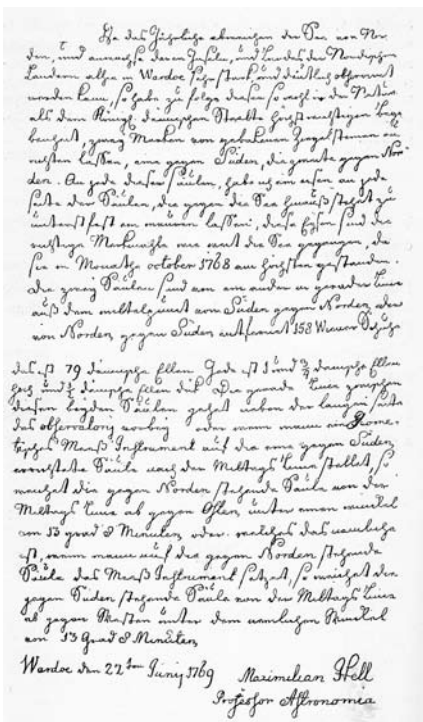 Da das Jährliche abweichen der See von Nor
den, und anwachse deren Inseln, und Landes der Nordischen
Ländern alhir in Wardoe sehr stark, und deutlich observiret
werden kann, so habe zu folge dieser so wohl in der Natur
als dem Königl: dänischen Staate höchst wichtigen Bege
benheit, zwey Marken von gebakenen Ziegelsteinen au
richten lassen, eine gegen Süden, die zweite gegen Nor
den. An jede dieser Säulen, habe ich ein eisen an jede
seite der Säulen, die gegen die See hinauß stehet zu
unterst fest ein mauren lassen, diese Eisen sind die
richtige Merkmahle wie weit die See gegangen, da
sie im Monathe october 1768 am höchsten gestanden.
Die zwey Säulen sind von ein ander in gerader Linie
auß dem mittelpunct vom Süden gegen Norden, oder
von Norden gegen Süden entfernet 158 Wiener Schuhe
das ist 79 dänische Ellen. Jede ist 1 und 3/4 dänische Ellen
hoch und 1/2 dänische Ellen dick. Die gerade Linie zwischen
diesen beyden Säulen gehet neben der langen seite
das observatorij vorbey oder wenn man ein Geome-
trisches Maß Instrument auf die eine gegen Süden
errichtete Säule nach der Mittags Linie stellet, so
weichet die gegen Norden stehende Säule von der
Mittags Linie ab gegen Osten unter einem winckel
von 13 grad 8 Minuten oder welches das nemliche
ist, wenn man auf die gegen Norden stehende
Säule das Maß Instrument setzet, so weichet die
gegen Süden stehende Säule von der Mittags Linie
ab gegen Westen unter dem nemlichen Winckel
von 13 Grad 8 Minuten
Wardoe den 22ten Junij 1769 Maximilian Hell
Professor Astronomiae